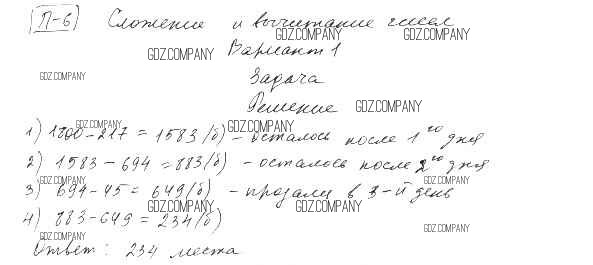 П-6 Сложение и вычитание чисел
GDZ.COMPANY
GDZ.COMPANY Вариант 1
GDZ.COMPANY Задача
Решение GDZ.COMPANY
GDZ.COMPANY GDZ.COMPANY
1) 1800-217 = 1583 (б) - осталось после 1го дня
2) 1583 - 694 = 883 (б) - осталось после 2го дня
GDZ.COMPANY GDZ.COMPANY
3) 694-45 = 649 (б) - продали в 3-й день
GDZ.COMPANY GDZ.COMPANY
4) 883-649 = 234 (б)
GDZ.COMPANY GDZ.COMPANY
Ответ: 234 места